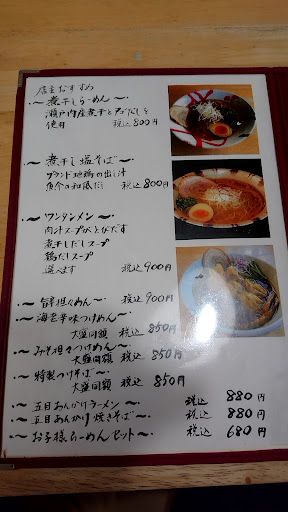 店主おすすめ
～煮干しらーめん～
瀬戸内産煮干と あごだしを
使用 税込800円
～煮干し塩そば～
ブランド地鶏の出し汁
魚介の和風だし 税込800円
～ワンタンメン～
肉汁スープがとびだす
煮干しだしスープ
鶏だしスープ
選べます 税込900円
担々めん～ 税込900円
～海老辛味つけめん～
大盛同額 税込850円
～みそ担々つけめん～
大盛同額 税込850円
～特製つけそば～
大盛同額 税込850円
～五目あんかけラーメン～ 税込 880円
～五目あんかけ焼きそば～ 税込 880円
～お子様らーめんセット～ 税込 680円